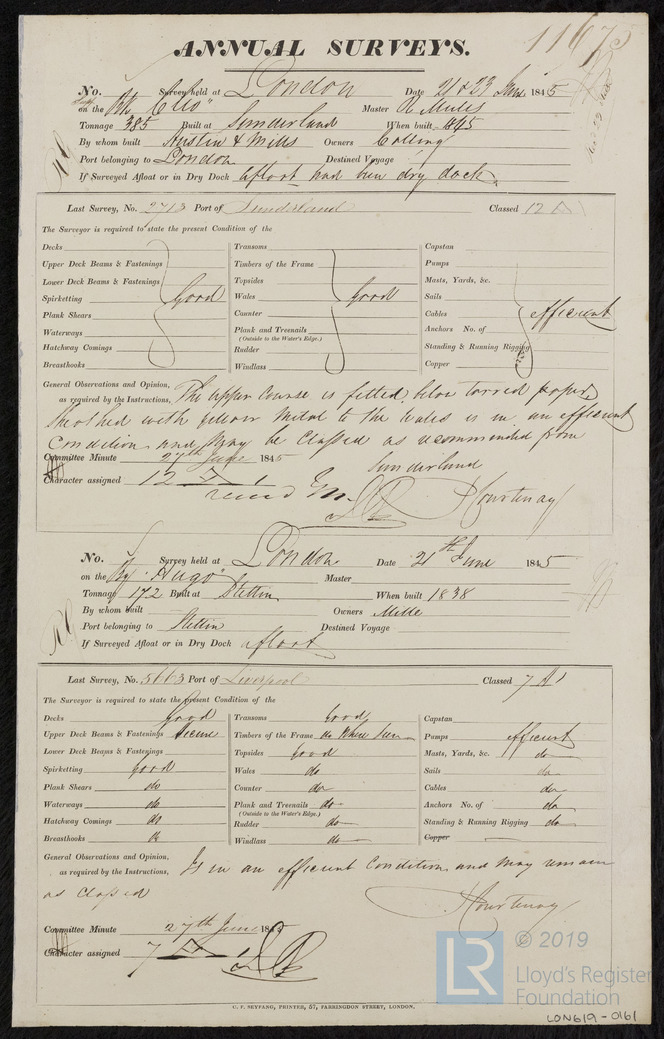 11675
ANNUAL SURVEYS.
No. Survey held at London Date 21 & 23 June 1845
on the Bk "Clio" Master R Mules
Tonnage 385 Built at Sunderland When built 1845
By whom built Austin & Mills Owners Colling
Port belonging to London Destined Voyage
If Surveyed Afloat or in Dry Dock afloat had been dry dock.
Last Survey, No. 2713 Port of Sunderland Classed 12 A1
The Surveyor is required to state the present Condition of the
Decks Transoms Capstan
Upper Deck Beams & Fastenings Timbers of the Frame Pumps
Lower Deck Beams & Fastenings Topsides Masts, Yards, &c.
Spirketting Good Wales Good Sails
Plank Shears Counter Cables efficient
Waterways Plank and Treenails Anchors No. of
(Outside to the Water's Edge.)
Hatchway Comings Rudder Standing & Running Rigging
Breasthooks Windlass Copper
General Observations and Opinion, The upper Course is felted below tarred paper
as required by the Instructions,
sheathed with yellow Metal to the Wales is in an efficient
Condition and May be Classed as recommended from
Sunderland
Committee Minute 27th June 1845
Character assigned 12 A 1
Courtenay
No. Survey held at London Date 21th June 1845
on the Bg "Hugo" Master
Tonnage 172 Built at Stettin When built 1838
By whom built Owners Mille
Port belonging to Stettin Destined Voyage
If Surveyed Afloat or in Dry Dock afloat
Last Survey, No. 5663 Port of Liverpool Classed 7 A1
The Surveyor is required to state the present Condition of the
Decks Good Transoms Good Capstan
Upper Deck Beams & Fastenings Secure Timbers of the Frame do Where Seen Pumps efficient
Lower Deck Beams & Fastenings Topsides good Masts, Yards, &c. do
Spirketting good Wales do Sails do
Plank Shears do Counter do Cables do
Waterways do Plank and Treenails do Anchors No. of do
(Outside to the Water's Edge.)
Hatchway Comings do Rudder do Standing & Running Rigging do
Breasthooks do Windlass do Copper
General Observations and Opinion, Is in an efficient Condition and may remain
as required by the Instructions,
as Classed
Courtenay
Committee Minute 27th June 1845
Character assigned 7 A 1
C. F. SEYFANG, PRINTER, 57, FARRINGDON STREET, LONDON.
LR © 2019
Lloyd's Register
Foundation
LON619-0161